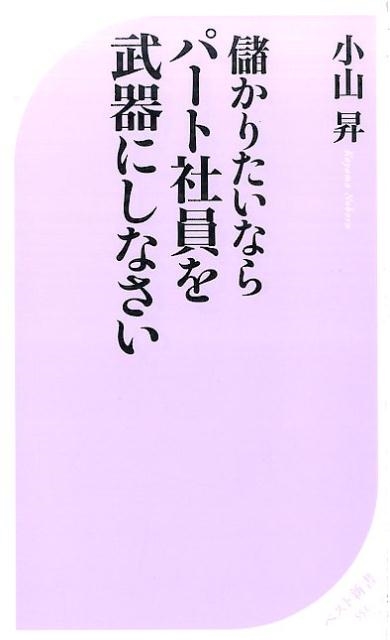 小山 昇
Koyama Noboru
儲かりたいなら
パート社員を
武器にしなさい
ベスト新書